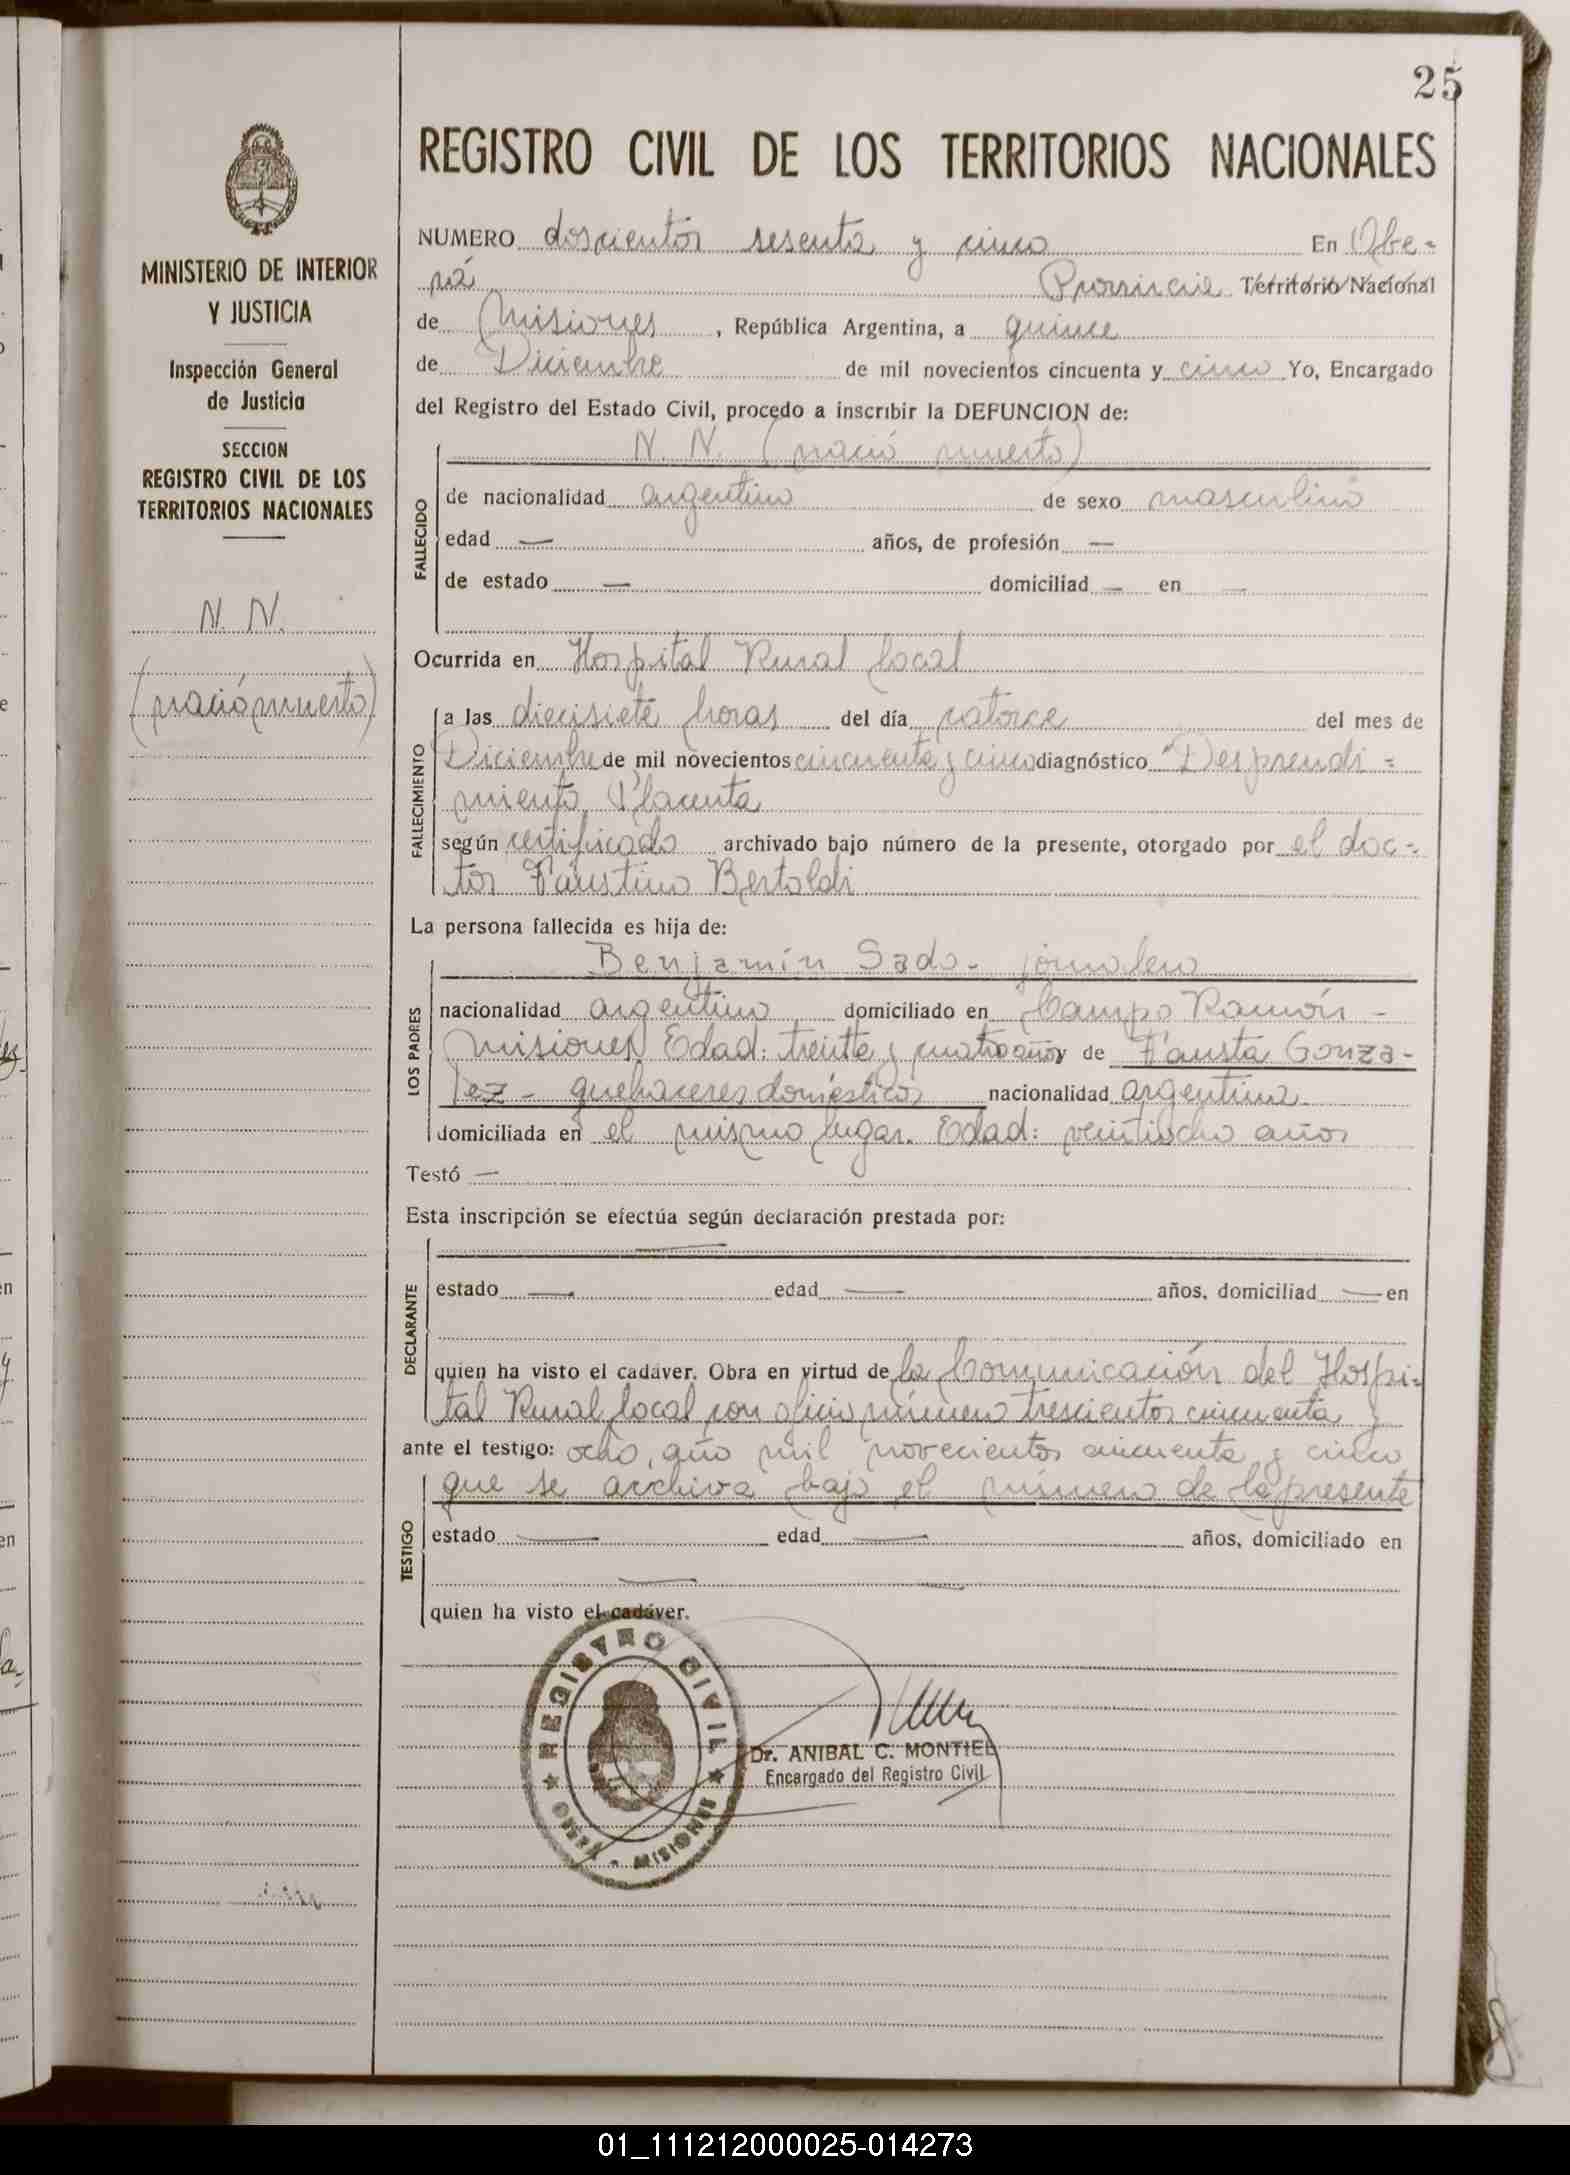 25
REGISTRO CIVIL DE LOS TERRITORIOS NACIONALES
MINISTERIO DE INTERIOR
Y JUSTICIA
Inspección General
de Justicia
SECCION
REGISTRO CIVIL DE LOS
TERRITORIOS NACIONALES
N. N.
(nació muerto)
NUMERO doscientos sesenta y cinco En Obe-
rá Provincia Territorio Nacional
de Misiones, República Argentina, a quince
de Diciembre de mil novecientos cincuenta y cinco Yo, Encargado
del Registro del Estado Civil, procedo a inscribir la DEFUNCION de:
N. N. (nació muerto)
FALLECIDO
de nacionalidad argentino de sexo masculino
edad — años, de profesión —
de estado — domiciliad — en —
Ocurrida en Hospital Rural local
FALLECIMIENTO
a las diecisiete horas del día catorce del mes de
Diciembre de mil novecientos cincuenta y cinco diagnóstico "Desprendi-
miento Placenta
según certificado archivado bajo número de la presente, otorgado por el doc-
tor Faustino Bertoldi
La persona fallecida es hija de:
LOS PADRES
Benjamín Sado - jornalero
nacionalidad argentino domiciliado en Campo Ramón -
Misiones Edad: treinta y cuatro años y de Fausta Gonza-
lez - quehaceres domésticos nacionalidad argentina
domiciliada en el mismo lugar. Edad: veintiocho años
Testó —
Esta inscripción se efectúa según declaración prestada por:
DECLARANTE
—
estado — edad — años, domiciliad — en
quien ha visto el cadáver. Obra en virtud de la Comunicación del Hospi-
tal Rural local con oficio número trescientos cincuenta y
ante el testigo: ocho, año mil novecientos cincuenta y cinco
que se archiva bajo el número de la presente
TESTIGO
estado — edad — años, domiciliado en
— —
quien ha visto el cadáver.
REGISTRO CIVIL
★ OBERA - MISIONES ★
Dr. ANIBAL C. MONTIEL
Encargado del Registro Civil
01_111212000025-014273